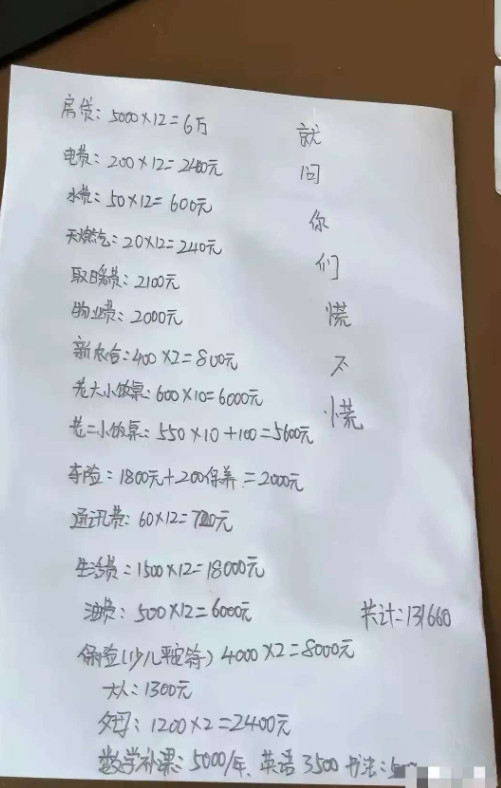 房贷：5000×12=6万
电费：200×12=2400元
水费：50×12=600元
天燃气：20×12=240元
取暖费：2100元
物业费：2000元
新农合：400×2=800元
老大小饭桌：600×10=6000元
老二小饭桌：550×10+100=5600元
车险：1800元+200保养=2000元
通讯费：60×12=720元
生活费：1500×12=18000元
油费：500×12=6000元
保险(少儿平安符)4000×2=8000元
大人：1300元
父母：1200×2=2400元
数学补课：5000/年、英语3500 书法：
共计：131660
就
问
你
们
慌
不
慌